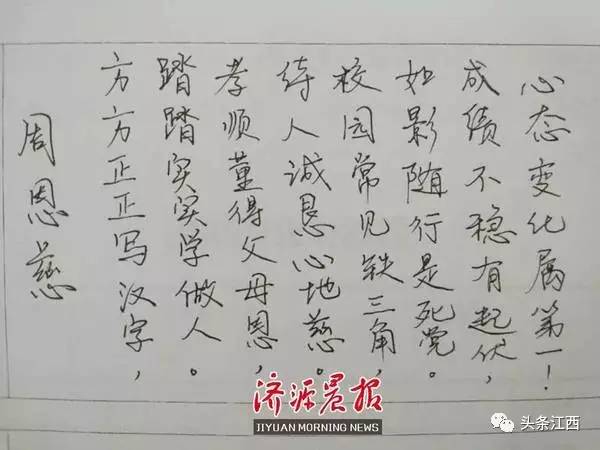 周恩慈
方方正正写汉字，
踏踏实实学做人。
孝顺董得父母恩，
待人诚恳心地慈。
校园常见铁三角，
如影随行是死党。
成绩不稳有起伏，
心态变化属第一！
济源晨报
JIYUAN MORNING NEWS
头条江西